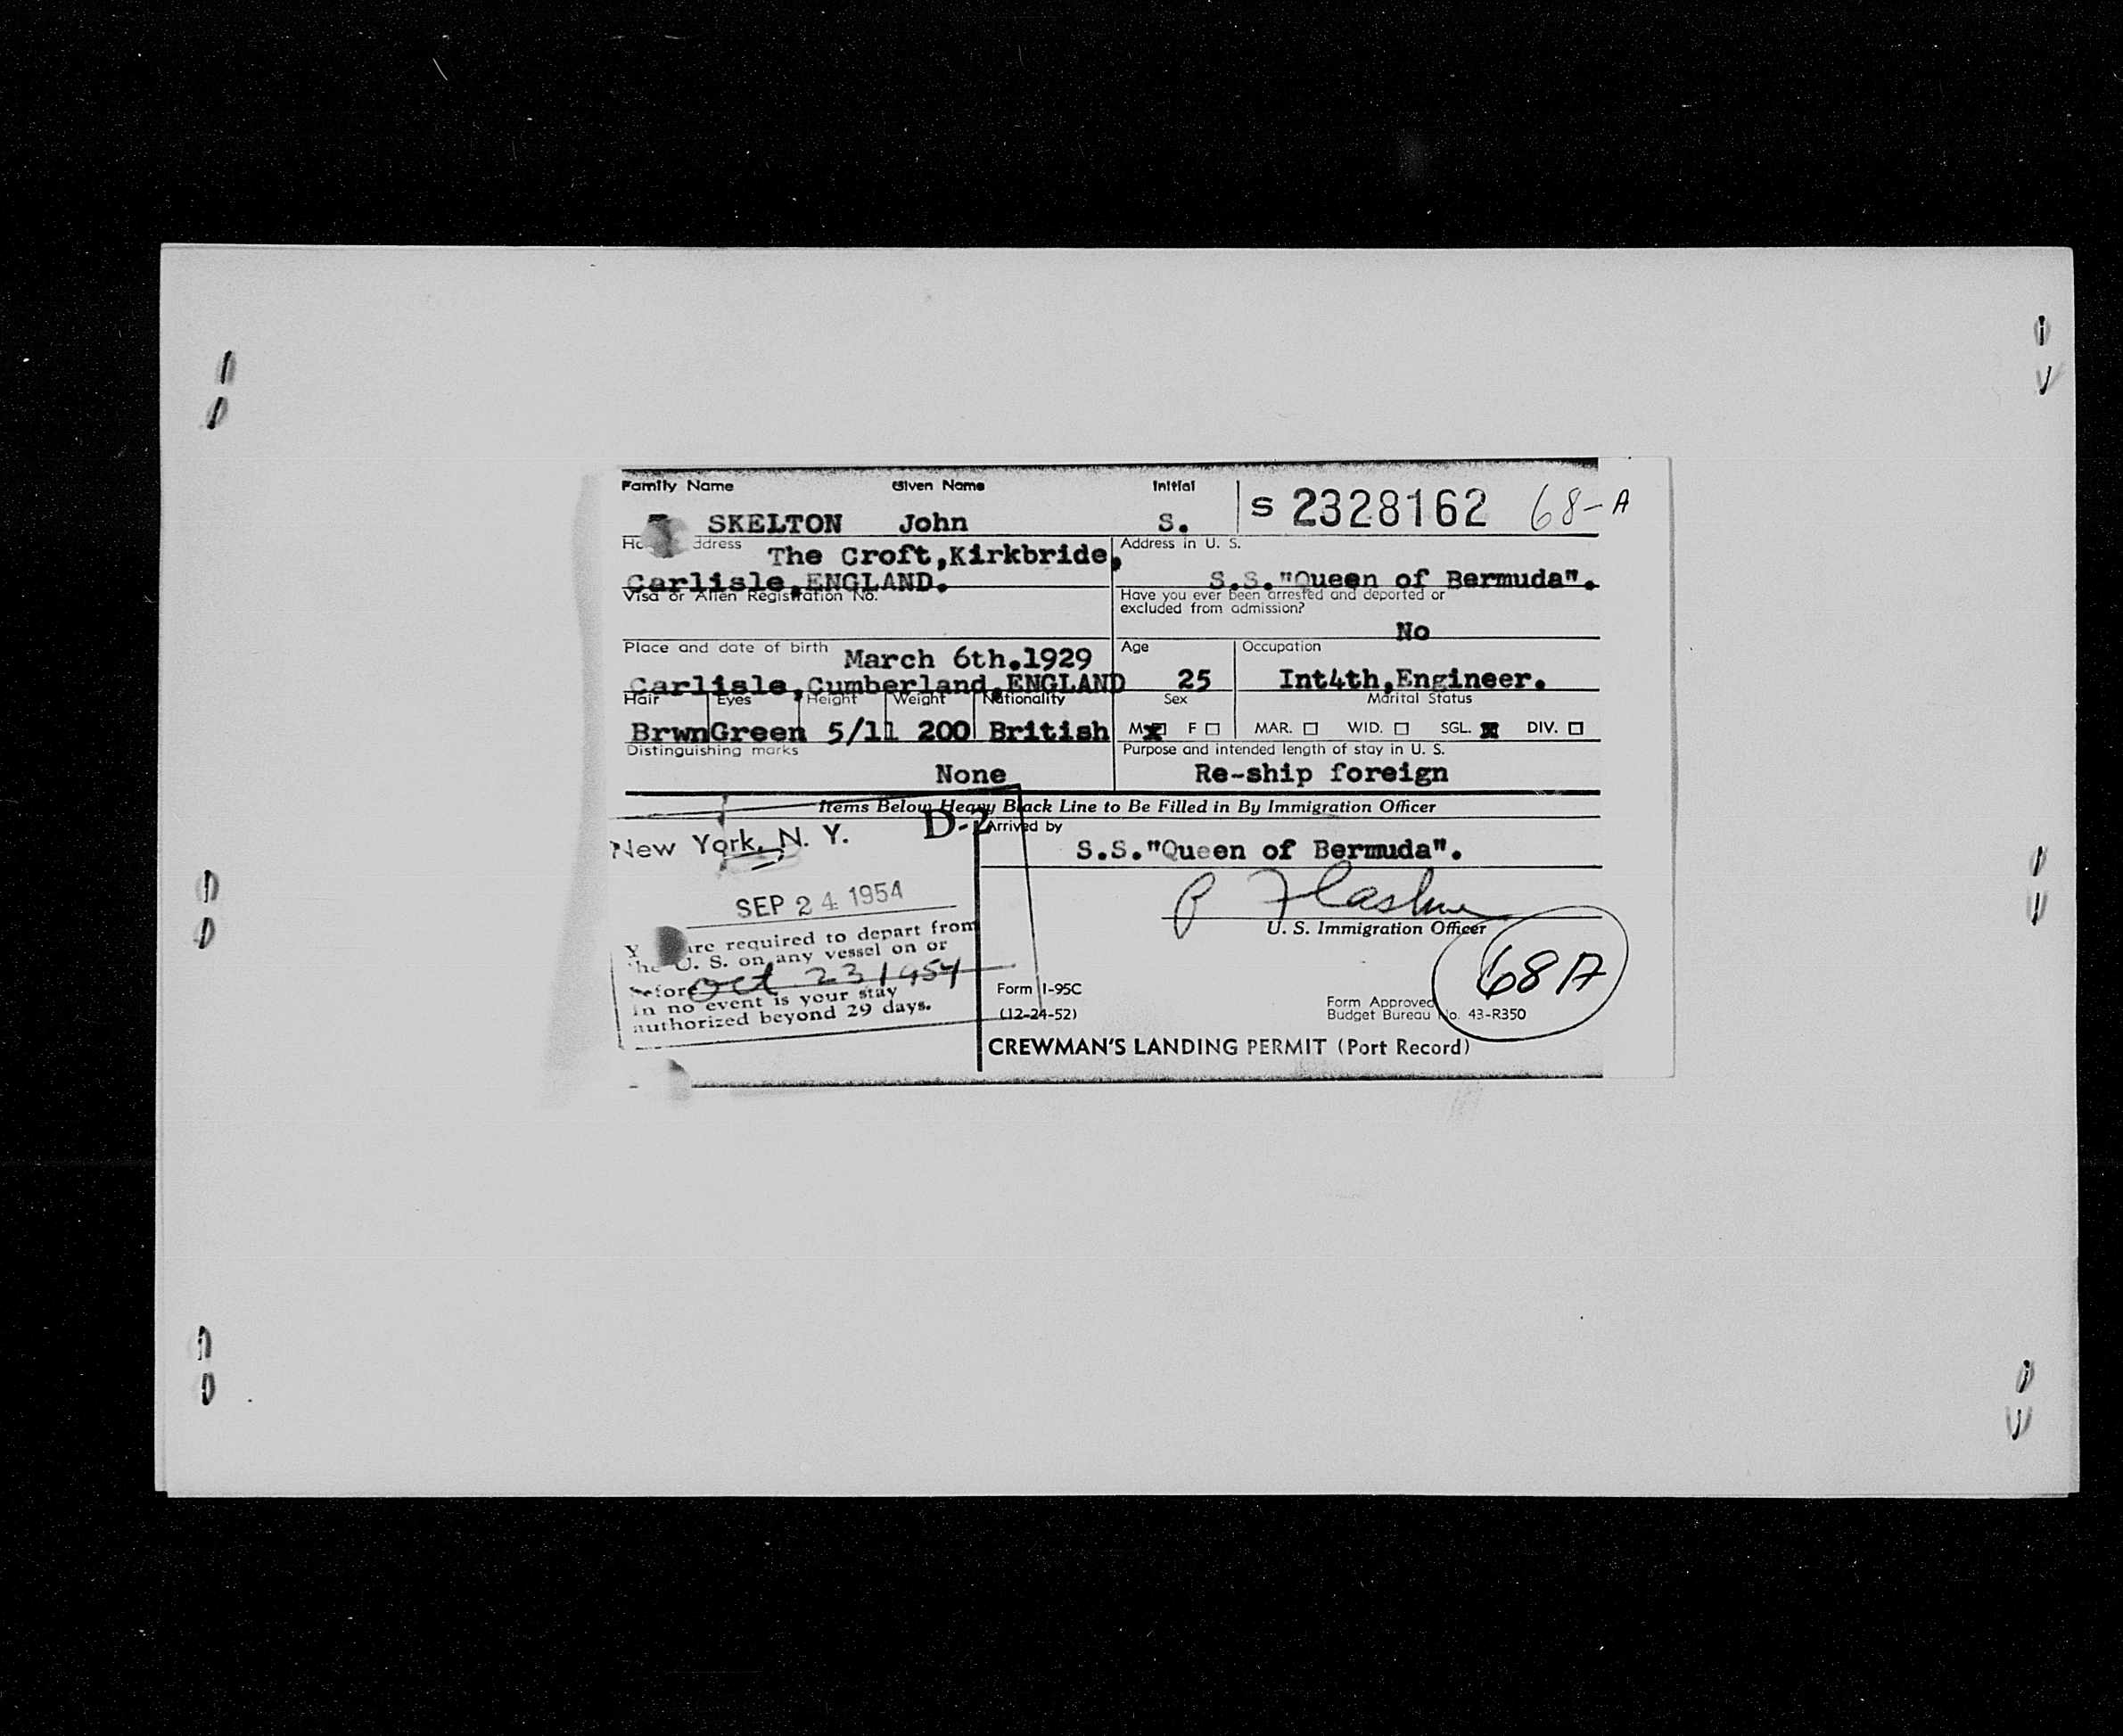 Family Name Given Name Initial
SKELTON John S. S 2328162 68-A
Address The Croft,Kirkbride, Address in U. S.
Carlisle,ENGLAND. S.S."Queen of Bermuda".
Visa or Alien Registration No. Have you ever been arrested and deported or
excluded from admission?
No
Place and date of birth March 6th.1929 Age Occupation
Carlisle,Cumberland,ENGLAND 25 Int4th,Engineer.
Hair Eyes Height Weight Nationality Sex Marital Status
Brwn Green 5/11 200 British M x F MAR. WID. SGL. x DIV.
Distinguishing marks Purpose and intended length of stay in U. S.
None Re-ship foreign
Items Below Heavy Black Line to Be Filled in By Immigration Officer
New York, N. Y. D-2 Arrived by
S.S."Queen of Bermuda".
SEP 24 1954
U. S. Immigration Officer
are required to depart from
the U. S. on any vessel on or
before Oct 23 1954
In no event is your stay
authorized beyond 29 days.
68A
Form I-95C
(12-24-52)
Form Approved
Budget Bureau No. 43-R350
CREWMAN'S LANDING PERMIT (Port Record)